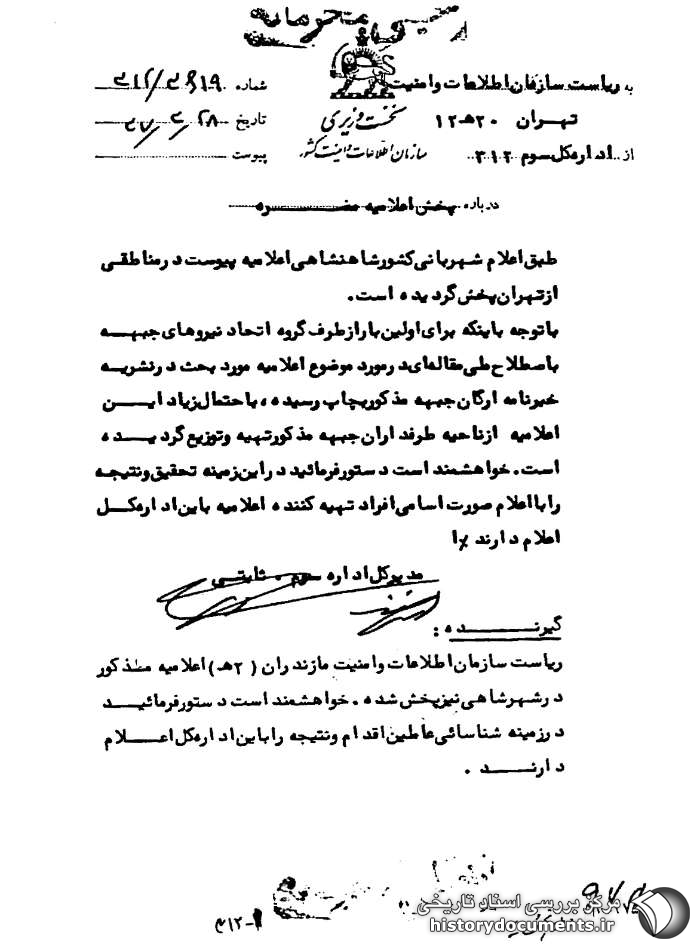 به ریاست سازمان اطلاعات وامنیت
تهران ۲۰هـ۱۲
از اداره کل سوم ۳۱۲
نخست وزیری
سازمان اطلاعات و امنیت کشور
شماره ۳۱۲/۳۶۱۹
تاریخ ۴۷/۳/۲۸
پیوست
درباره پخش اعلامیه مضره
طبق اعلام شهربانی کشور شاهنشاهی اعلامیه پیوست در مناطقی
از تهران پخش گردیده است.
با توجه باینکه برای اولین بار از طرف گروه اتحاد نیروهای جبهه
باصطلاح طی مقاله‌ای در مورد موضوع اعلامیه مورد بحث در نشریه
خبرنامه ارگان جبهه مذکور بچاپ رسیده، با احتمال زیاد این
اعلامیه از ناحیه طرفداران جبهه مذکور تهیه و توزیع گردیده
است. خواهشمند است دستور فرمائید در این زمینه تحقیق و نتیجه
را با اعلام صورت اسامی افراد تهیه کننده اعلامیه باین اداره کل
اعلام دارند
مدیر کل اداره سوم. ثابتی
گیرنده:
ریاست سازمان اطلاعات وامنیت مازندران (۲هـ) اعلامیه مذکور
در شهرشاهی نیز پخش شده. خواهشمند است دستور فرمائید
در زمینه شناسائی عاملین اقدام و نتیجه را باین اداره کل اعلام
دارند.
مرکز بررسی اسناد تاریخی
historydocuments.ir